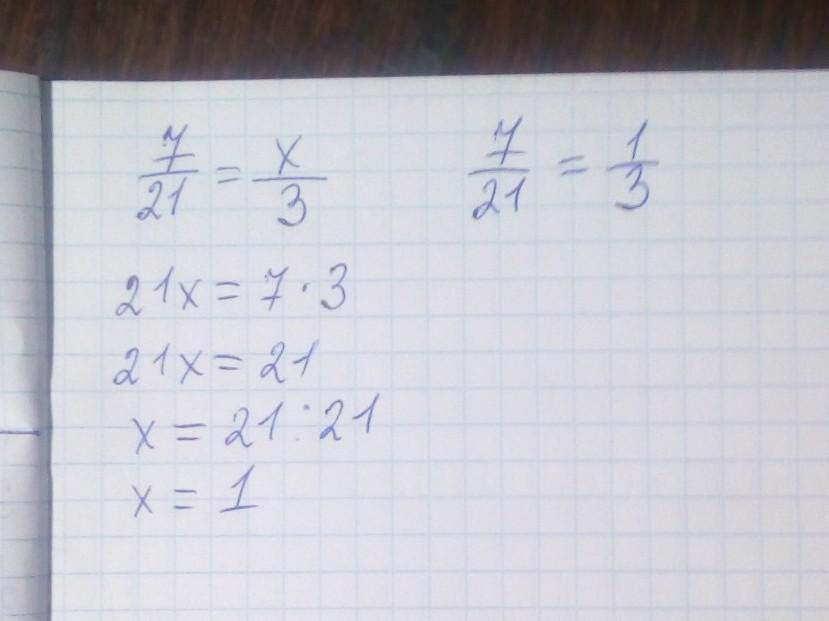 7/21 = x/3
7/21 = 1/3
21x = 7 · 3
21x = 21
x = 21 : 21
x = 1